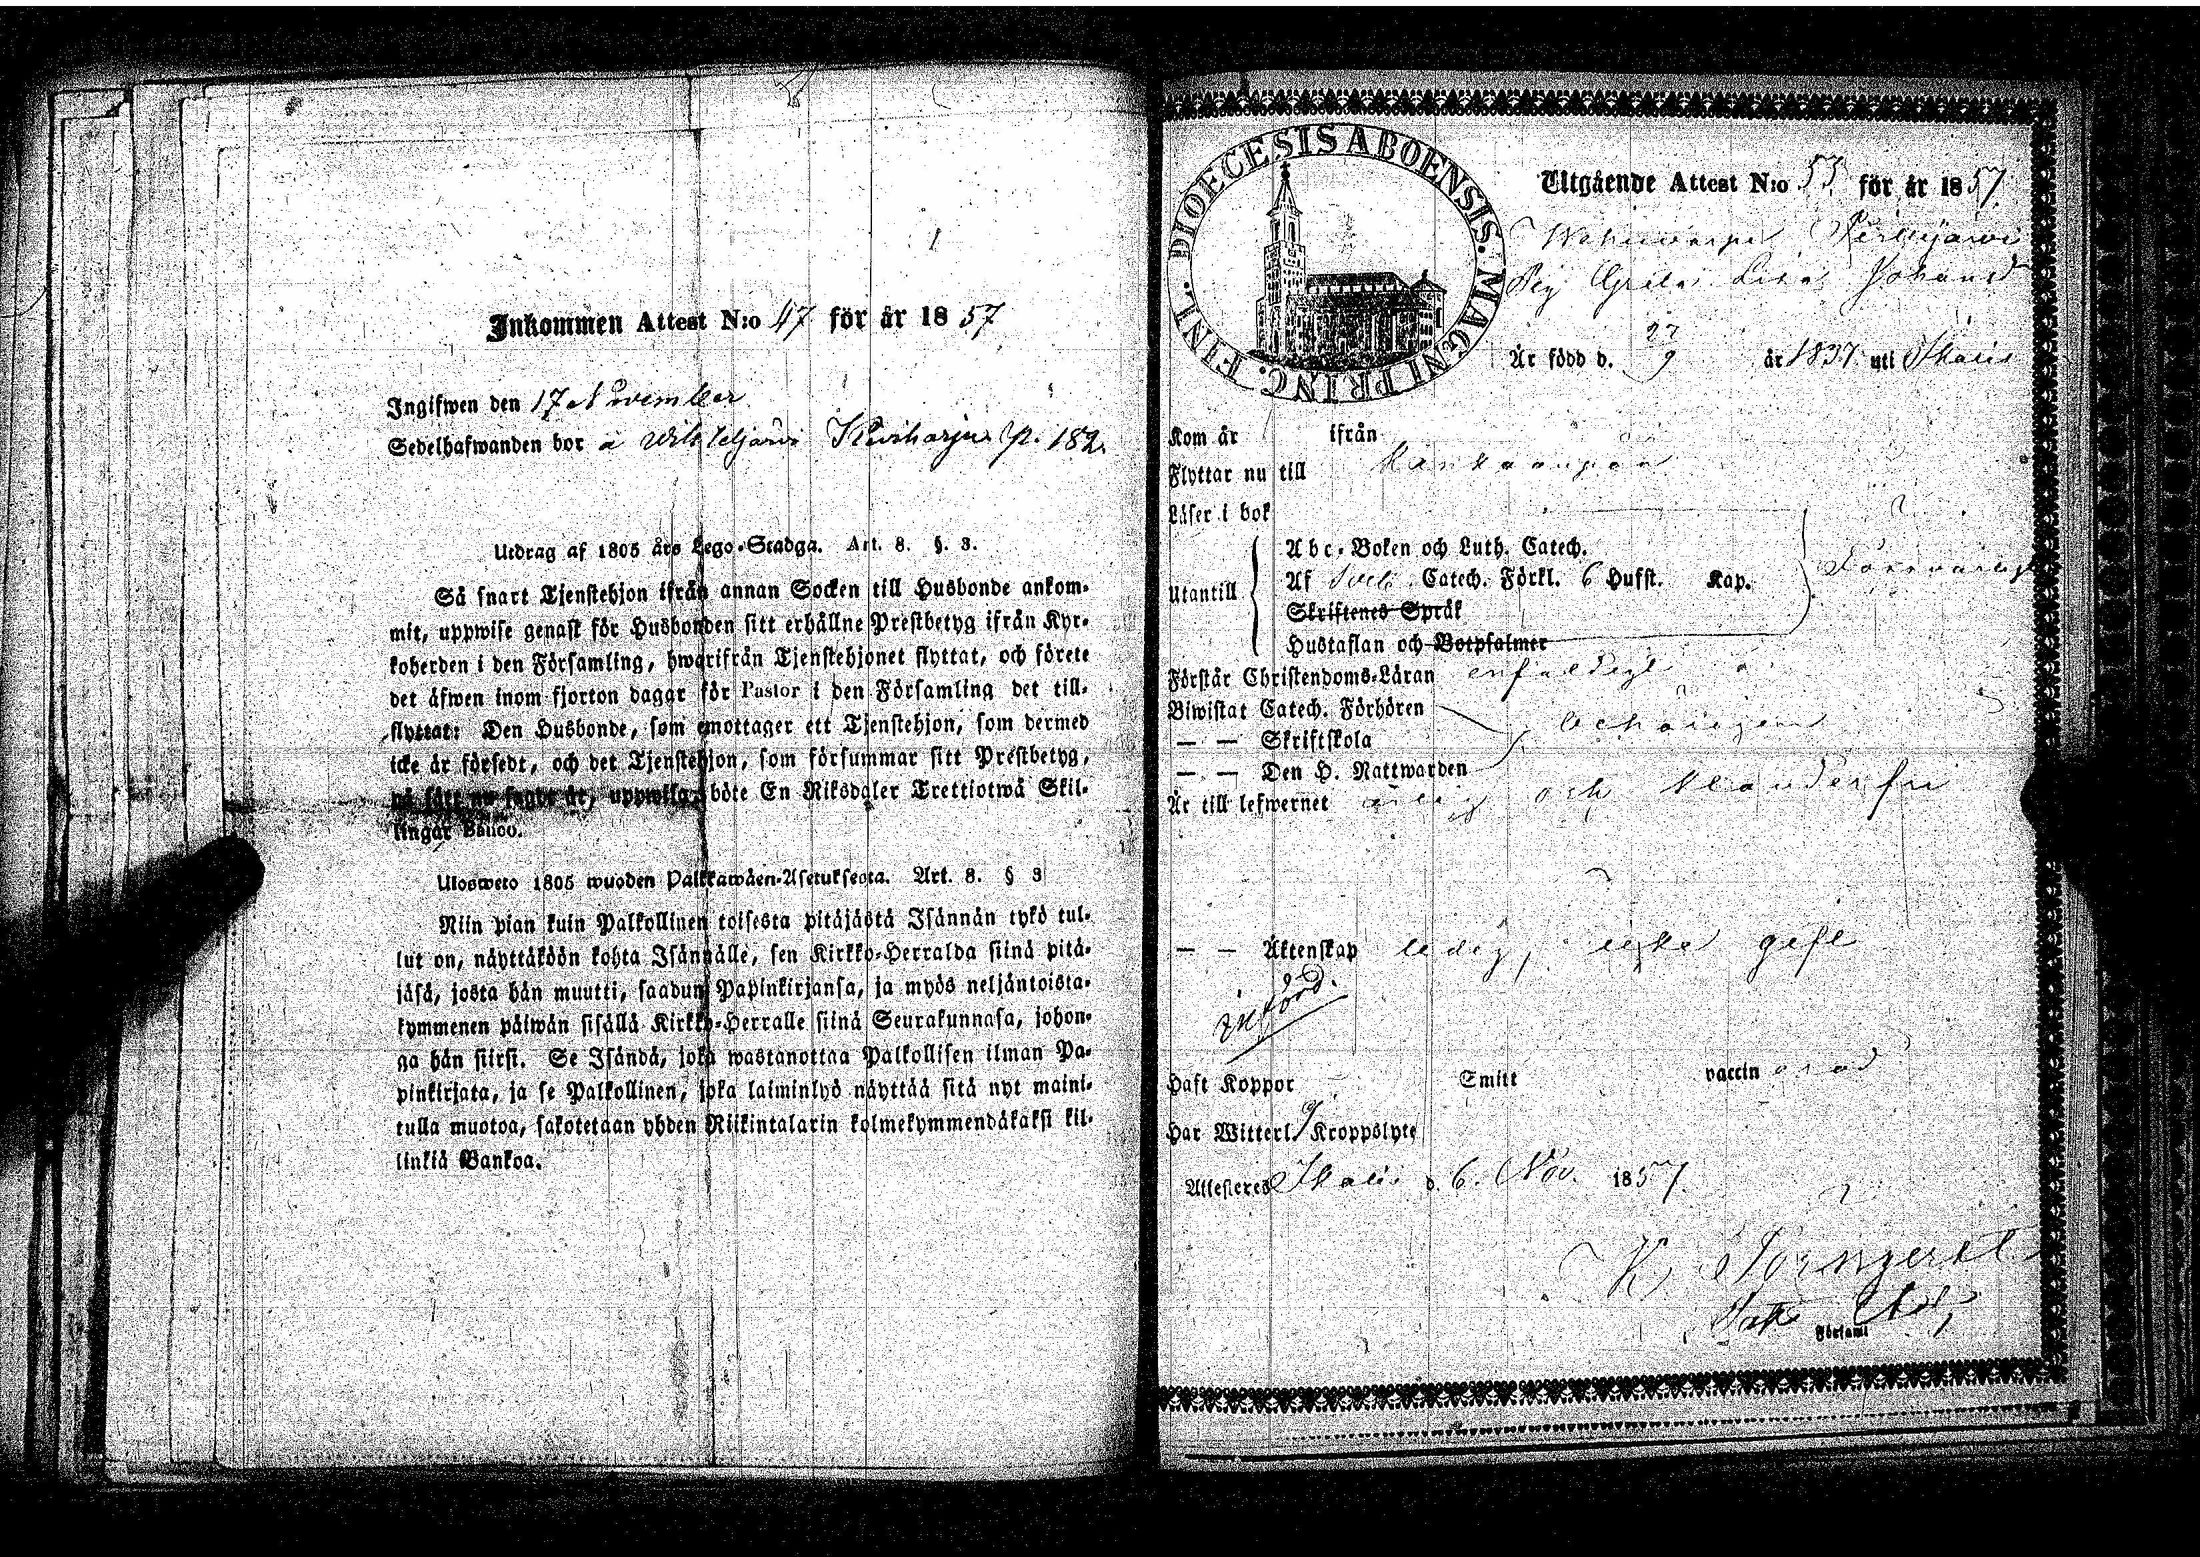 Inkommen Attest N:o 47 för år 1857
Ingifwen den 17 November
Sedelhafwanden bor å Kiviharju p. 182.
Utdrag af 1805 års Lego-Stadga. Art. 8. §. 3.
Så snart Tjenstehjon ifrån annan Socken till Husbonde ankom-
mit, uppwise genast för Husbonden sitt erhållne Prestbetyg ifrån Kyr-
koherden i den Församling, hwarifrån Tjenstehjonet flyttat, och förete
det äfwen inom fjorton dagar för Pastor i den Församling det till-
flyttat: Den Husbonde, som emottager ett Tjenstehjon, som dermed
icke är försedt, och det Tjenstehjon, som försummar sitt Prestbetyg,
på sätt nu sagdt är, uppwisa, böte En Riksdaler Trettiotwå Skil-
lingar Banco.
Uloswето 1805 wuoden Palkkawäen-Asetuksesta. Art. 8. § 3
Niin pian kuin Palkollinen toisesta pitäjästä Isännän tykö tul-
lut on, näyttäköön kohta Isännälle, sen Kirkko-Herralda siinä pitä-
jäsä, josta hän muutti, saadun Papinkirjansa, ja myös neljäntoista-
kymmenen päiwän sisällä Kirkko-Herralle siinä Seurakunnasa, johon-
ga hän siirsi. Se Isändä, joka wastanottaa Palkollisen ilman Pa-
pinkirjata, ja se Palkollinen, joka laiminlyö näyttää sitä nyt maini-
tulla muotoa, sakotetaan yhden Riikintalarin kolmekymmendäkaksi kil-
linkiä Bankoa.
DIOECESIS ABOENSIS. MAGNI PRINC. FINL.
Utgående Attest N:o 53 för år 1857.
Pig. Greta Lisa Johansd
Är född d. 27/9 år 1837 uti Ikalis
Kom år ifrån
Flyttar nu till Kankaanpää
Läser i bok
Utantill
Abc-Boken och Luth. Catech.
Af Sveb. Catech. Förkl. 6 Hufst. Kap.
Försvarligt
Skriftenes Språk
Hustaflan och Botpsalmer
Förstår Christendoms-Läran enfaldigt
Biwistat Catech. Förhören
— — Skriftskola
behörigen
— — Den H. Nattwarden
Är till lefwernet ärlig och klanderfri
— — Äktenskap ledig, icke gift
införd.
Haft Koppor Smitt vaccin
Har Witterl. Kroppslyte
Attesteres Ikalis d. 6. Nov. 1857.
K.
Församl